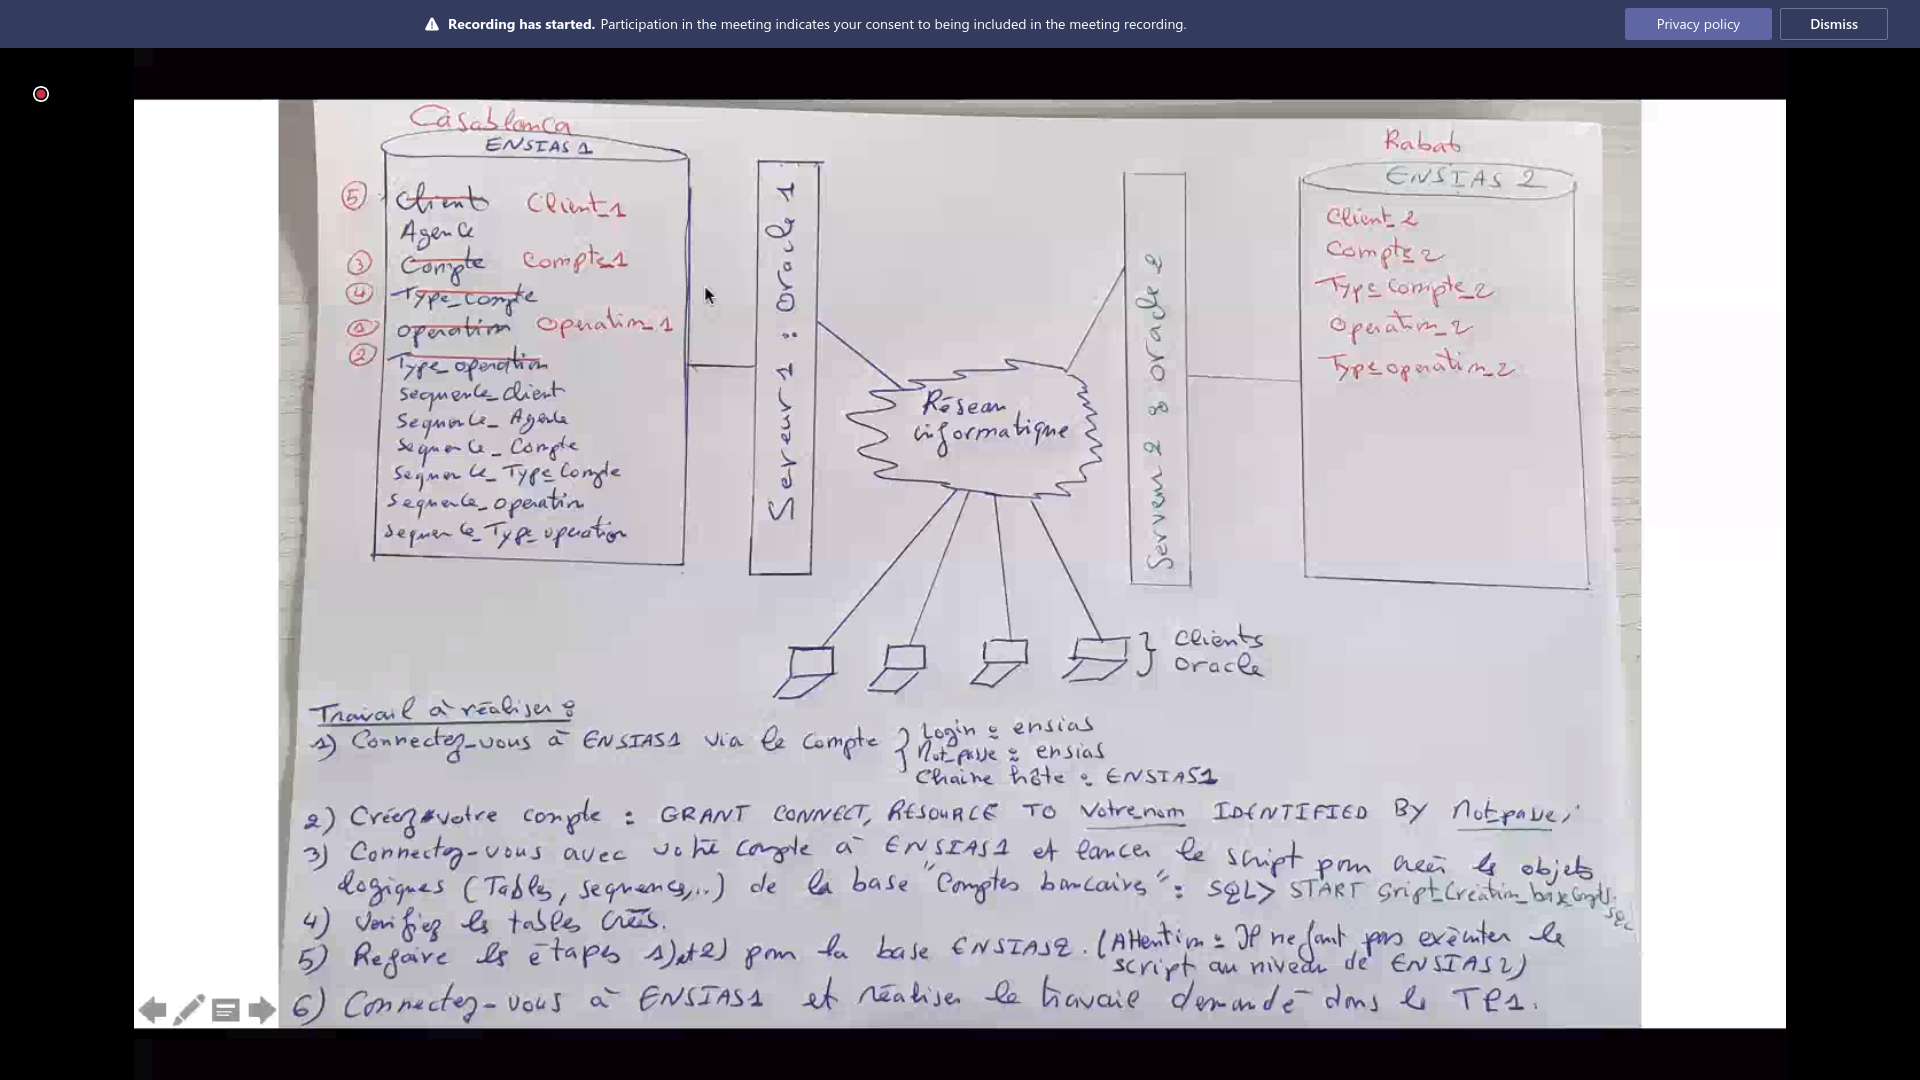 Recording has started. Participation in the meeting indicates your consent to being included in the meeting recording.
Privacy policy
Dismiss
Casablanca
ENSIAS 1
⑤ Client Client_1
Agence
③ Compte Compte_1
④ Type_Compte
① operation Operation_1
② Type_operation
Sequence_Client
Sequence_Agence
Sequence_Compte
Sequence_Type_Compte
Sequence_operation
Sequence_Type_operation
Serveur 1 : Oracle 1
Réseau
informatique
Serveur 2 : Oracle 2
Rabat
ENSIAS 2
Client_2
Compte_2
Type_Compte_2
Operation_2
Type_operation_2
Clients
Oracle
Travail à réaliser :
1) Connectez-vous à ENSIAS1 via le compte
Login : ensias
Mot_passe : ensias
Chaine hôte : ENSIAS1
2) Créez votre compte : GRANT CONNECT, RESOURCE TO Votre_nom IDENTIFIED BY Motpasse;
3) Connectez-vous avec votre compte à ENSIAS1 et lancer le script pour créer les objets
logiques (Tables, sequence,..) de la base "Comptes bancaires" : SQL> START Script_Creation_base_Compte.sql
4) Verifiez les tables créés.
5) Refaire les étapes 1) et 2) pour la base ENSIAS2. (Attention : Il ne faut pas exécuter le
script au niveau de ENSIAS2)
6) Connectez-vous à ENSIAS1 et réaliser le travail demandé dans le TP1.